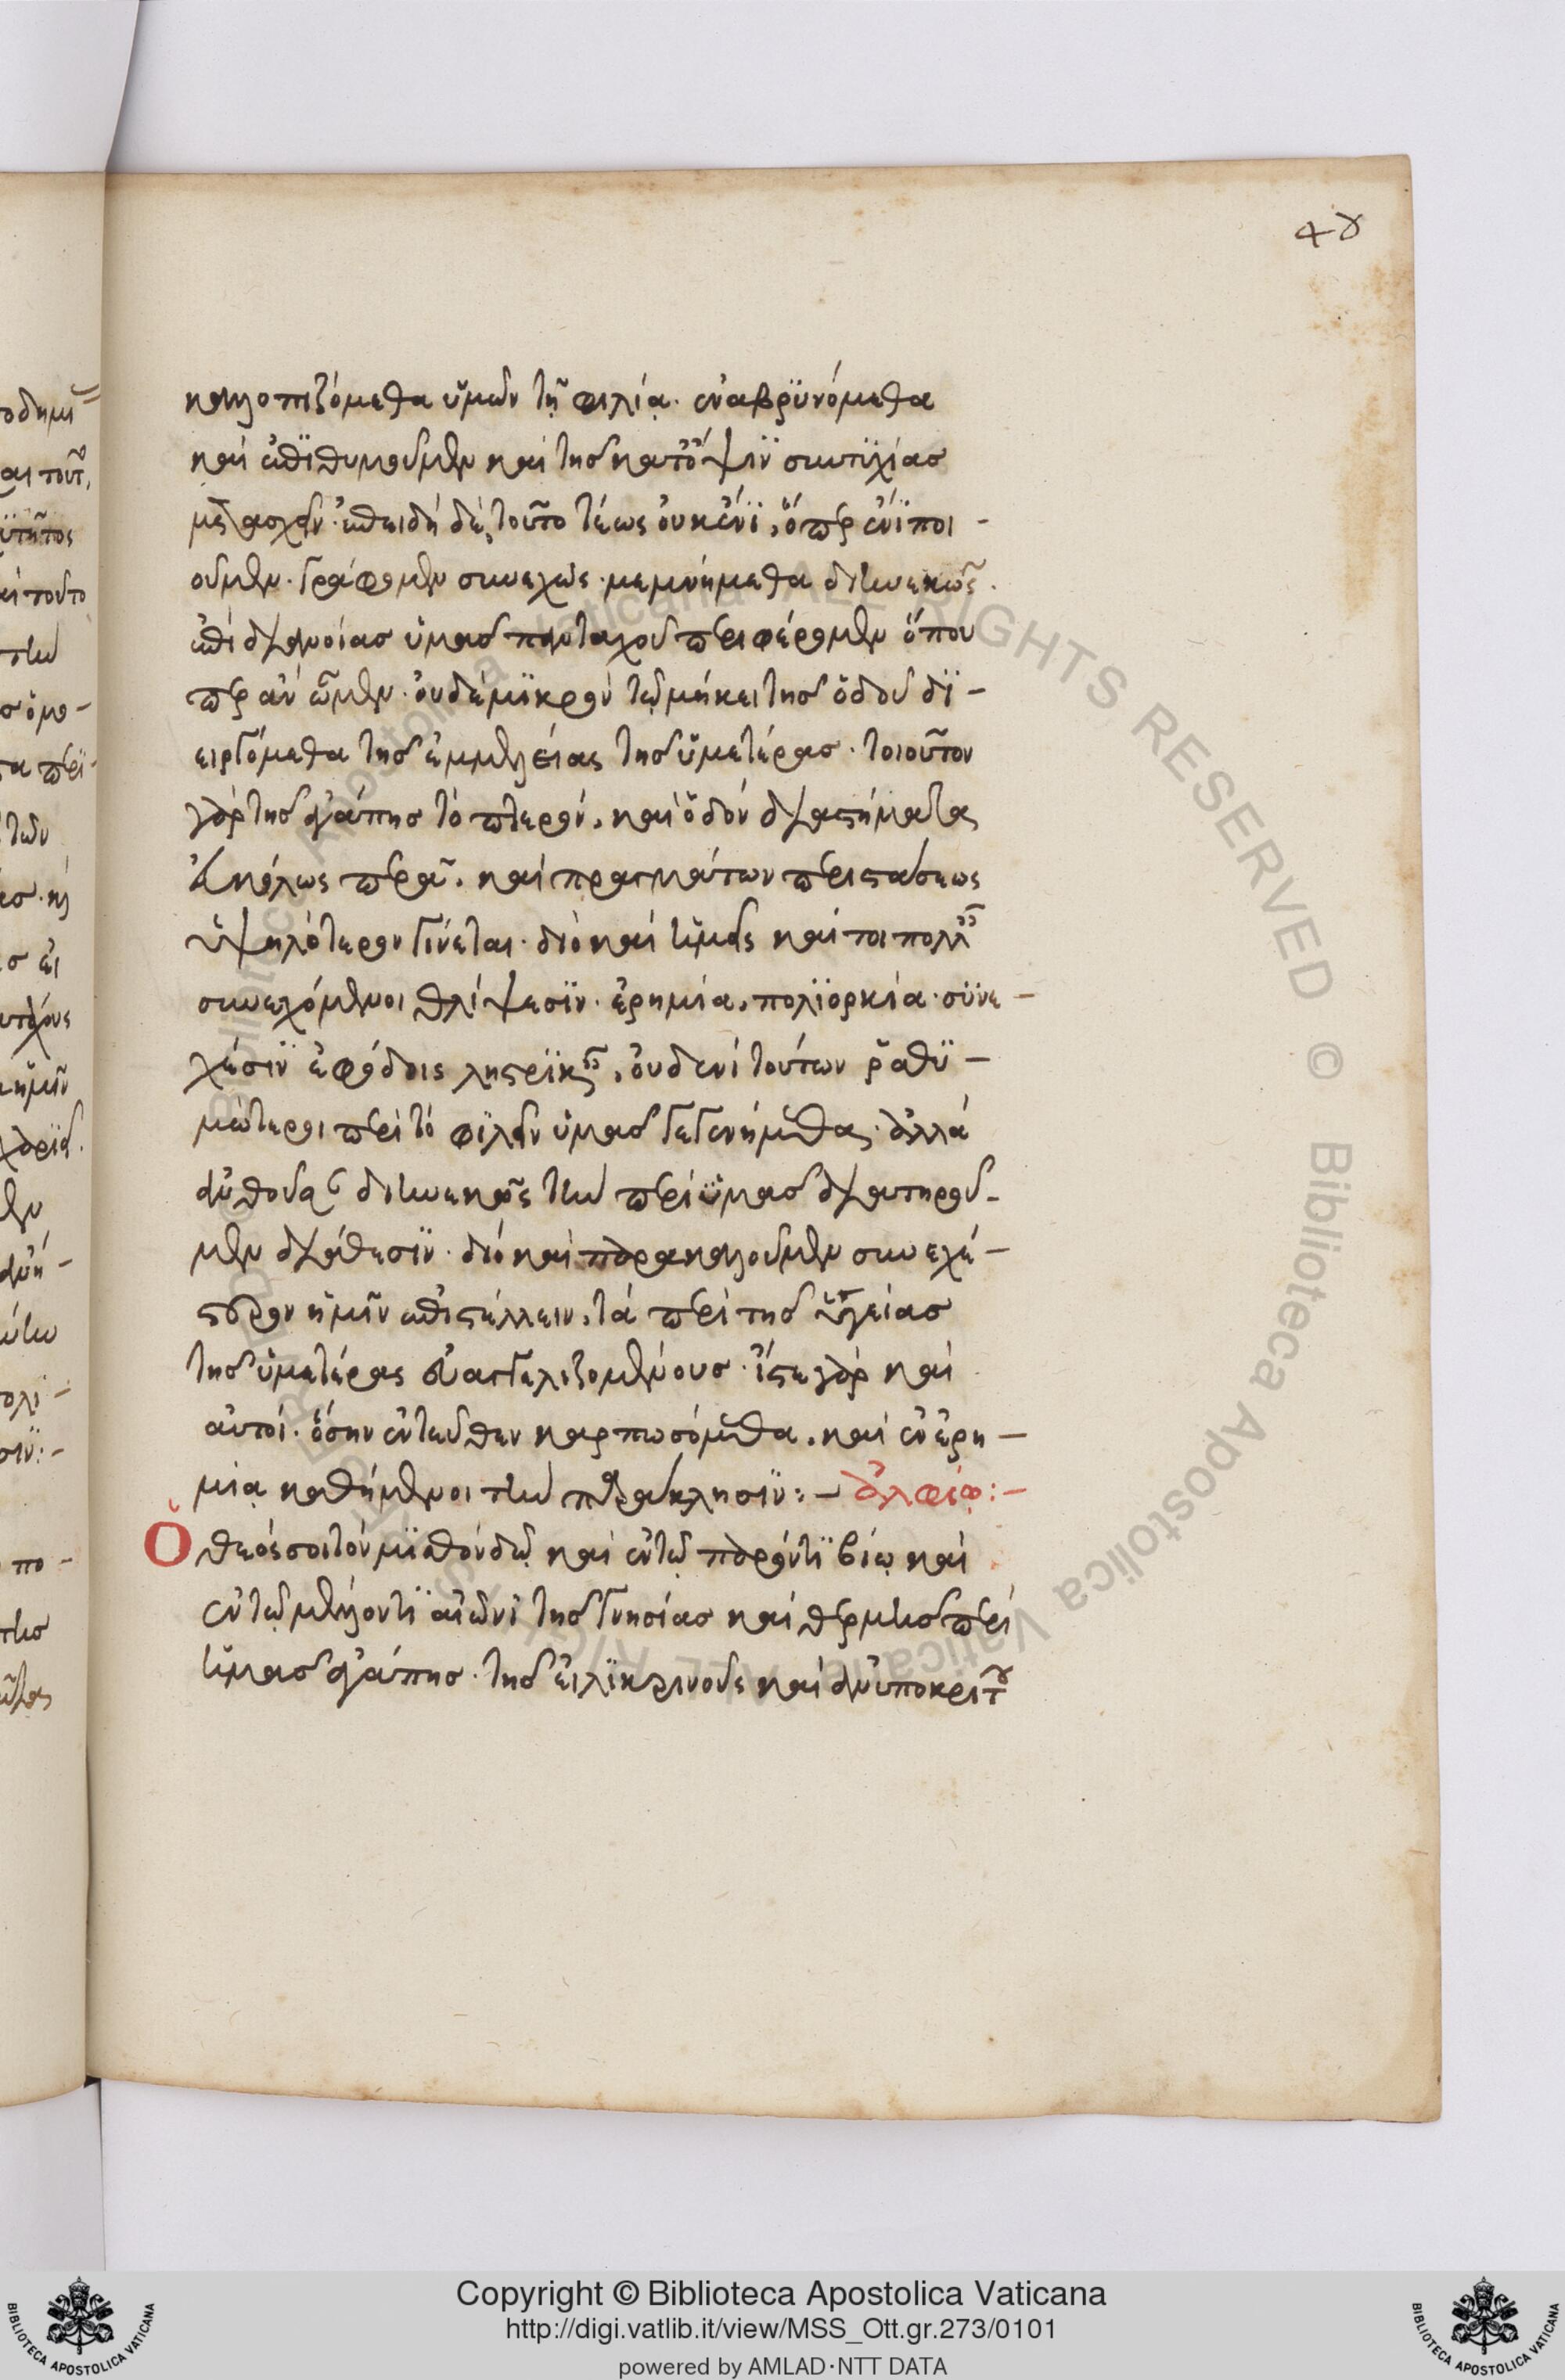 48
καλλοπιζόμεθα ὑμῶν τῇ φιλίᾳ. ἐναβρϋνόμεθα
καὶ ἐπϊθυμοῦμεν καὶ τῆς κατ' ὄψιν συντυχίας
μετασχεῖν. ἐπειδὴ δὲ, τοῦτο τέως οὐκ ἔνϊ, ὅπερ ἔνϊ ποι-
οῦμεν. γράφομεν συνεχῶς. μεμνήμεθα διηνεκῶς.
ἐπὶ διανοίας ὑμᾶς πανταχοῦ περιφέρομεν ὅπου
περ ἂν ὦμεν. οὐδὲ μϊκρὸν τῷ μήκει τῆς ὁδοῦ δϊ-
ειργόμεθα τῆς ἐμμελείας τῆς ὑμετέρας. τοιοῦτον
γὰρ τῆς ἀγάπης τὸ πτερόν, καὶ ὁδὸν διαστήματα
εὐκόλως περᾶ, καὶ πραγμάτων περιστάσεως
ὑψηλότερον γίνεται. διὸ καὶ ἡμεῖς καίτοι πολλαῖς
συνεχόμενοι θλίψεσϊν. ἐρημία, πολϊορκία. σϋνε-
χέσϊν ἐφόδοις λῃστρϊκαῖς, οὐδενὶ τούτων ῥαθϋ-
μώτεροι περὶ τὸ φϊλεῖν ὑμᾶς γεγενήμεθα. ἀλλὰ
ἀνθοῦσαν διηνεκῶς τὴν περὶ ὑμᾶς διατηροῦ-
μεν διάθεσϊν. διὸ καὶ παρακαλοῦμεν συνεχέ-
στερον ἡμῖν ἐπιστέλλειν, τὰ περὶ τῆς ὑγείας
τῆς ὑμετέρας εὐαγγελιζομένους. ἴστε γὰρ καὶ
αὐτοί. ὅσην ἐντεῦθεν καρπωσόμεθα, καὶ ἐν ἐρη-
μίᾳ καθήμενοι τὴν παράκλησϊν:— ἀλφίῳ:—
Ὁ θεός σοι τὸν μϊσθὸν δῷ καὶ ἐν τῷ παρόντϊ βίῳ καὶ
ἐν τῷ μέλλοντϊ αἰῶνϊ τῆς γνησίας καὶ θερμῆς περὶ
ἡμᾶς ἀγάπης. τῆς εἰλϊκρινοῦς καὶ ἀνυποκρίτου
Copyright © Biblioteca Apostolica Vaticana
http://digi.vatlib.it/view/MSS_Ott.gr.273/0101
powered by AMLAD·NTT DATA